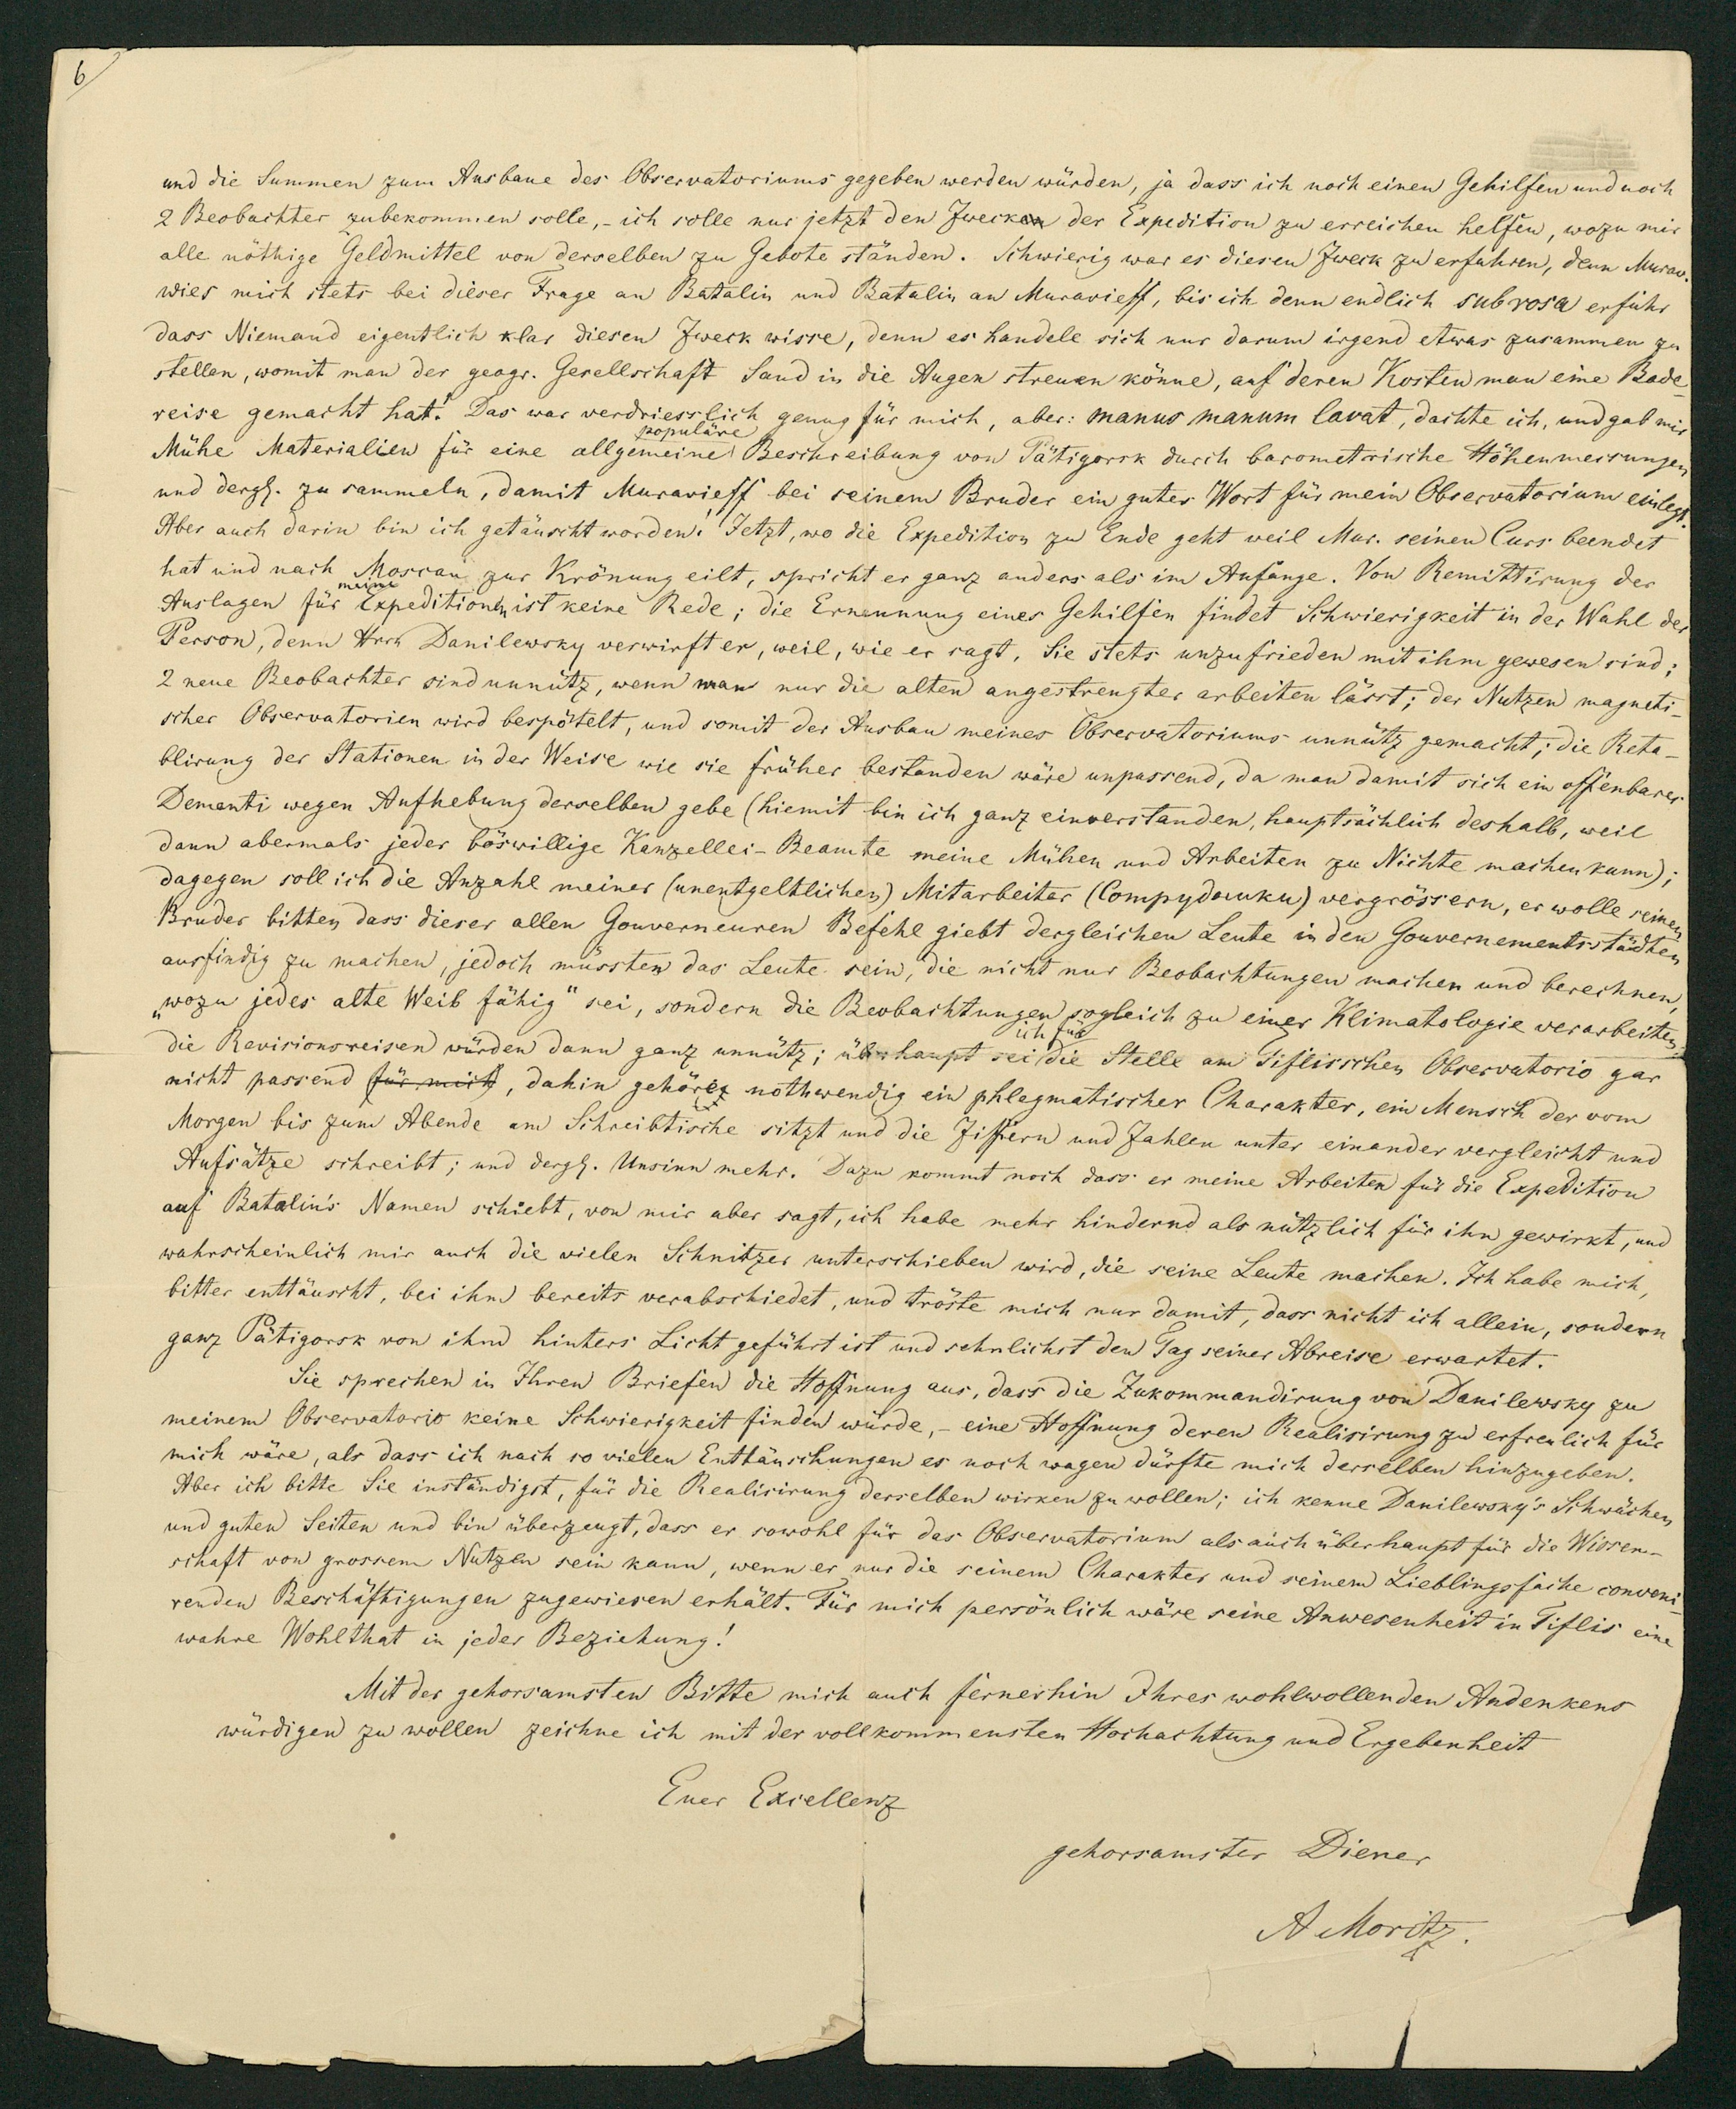 6
und die Summen zum Ausbaue des Observatoriums gegeben werden würden, ja dass ich noch einen Gehilfen und noch
2 Beobachter zubekommen solle, - ich solle nur jetzt den Zweck der Expedition zu erreichen helfen, wozu mir
alle nöthige Geldmittel von derselben zu Gebote ständen. Schwierig war es diesen Zweck zu erfahren, denn Murav.
wies mich stets bei dieser Frage an Batalin und Batalin an Muravieff, bis ich denn endlich sub rosa erfuhr
dass Niemand eigentlich klar diesen Zweck wisse, denn es handele sich nur darum irgend etwas zusammen zu
stellen, womit man der geogr. Gesellschaft Sand in die Augen streuen könne, auf deren Kosten man eine Bade-
reise gemacht hat! Das war verdriesslich genug für mich, aber: manus manum lavat, dachte ich, und gab mir
populäre
Mühe Materialien für eine allgemeine Beschreibung von Pätigorsk durch barometrische Höhenmessungen
und dergl. zu sammeln, damit Muravieff bei seinem Bruder ein gutes Wort für mein Observatorium einlegt.
Aber auch darin bin ich getäuscht worden! Jetzt, wo die Expedition zu Ende geht weil Mur. seinen Curs beendet
hat und nach Moscau zur Krönung eilt, spricht er ganz anders als im Anfange. Von Remittirung der
meine
Auslagen für Expeditionen ist keine Rede; die Ernennung eines Gehilfen findet Schwierigkeit in der Wahl der
Person, denn Hrrn Danilewsky verwirft er, weil, wie er sagt, Sie stets unzufrieden mit ihm gewesen sind;
2 neue Beobachter sind unnütz, wenn man nur die alten angestrengter arbeiten lässt; der Nutzen magneti-
scher Observatorien wird bespöttelt, und somit der Ausbau meines Observatoriums unnütz gemacht; die Reta-
blirung der Stationen in der Weise wie sie früher bestanden wäre unpassend, da man damit sich ein offenbares
Dementi wegen Aufhebung derselben gebe (hiemit bin ich ganz einverstanden, hauptsächlich deshalb, weil
dann abermals jeder böswillige Kanzellei-Beamte meine Mühen und Arbeiten zu Nichte machen kann);
dagegen soll ich die Anzahl meiner (unentgeltlichen) Mitarbeiter (Сотрудники) vergrössern, er wolle seinen
Bruder bitten dass dieser allen Gouverneuren Befehle giebt dergleichen Leute in den Gouvernementsstädten
ausfindig zu machen, jedoch müssten das Leute sein, die nicht nur Beobachtungen machen und berechnen,
„wozu jedes alte Weib fähig" sei, sondern die Beobachtungen sogleich zu einer Klimatologie verarbeiten;
ich für
die Revisionsreisen würden dann ganz unnütz; überhaupt sei die Stelle am Tiflisschen Observatorio gar
nicht passend für mich, dahin gehöre nothwendig ein phlegmatischer Charakter, ein Mensch der vom
Morgen bis zum Abende am Schreibtische sitzt und die Ziffern und Zahlen unter einander vergleicht und
Aufsätze schreibt; und dergl. Unsinn mehr. Dazu kommt noch dass er meine Arbeiten für die Expedition
auf Batalin's Namen schiebt, von mir aber sagt, ich habe mehr hindernd als nützlich für ihn gewirkt, und
wahrscheinlich mir auch die vielen Schnitzer unterschieben wird, die seine Leute machen. Ich habe mich,
bitter enttäuscht, bei ihm bereits verabschiedet, und tröste mich nur damit, dass nicht ich allein, sondern
ganz Pätigorsk von ihm hinters Licht geführt ist und sehnlichst den Tag seiner Abreise erwartet.
Sie sprechen in Ihren Briefen die Hoffnung aus, dass die Zukommandirung von Danilewsky zu
meinem Observatorio keine Schwierigkeit finden würde, - eine Hoffnung deren Realisirung zu erfreulich für
mich wäre, als dass ich nach so vielen Enttäuschungen es noch wagen dürfte mich derselben hinzugeben.
Aber ich bitte Sie inständigst, für die Realisirung derselben wirken zu wollen; ich kenne Danilewsky's Schwächen
und guten Seiten und bin überzeugt, dass er sowohl für das Observatorium als auch überhaupt für die Wissen-
schaft von grossem Nutzen sein kann, wenn er nur die seinem Charakter und seinem Lieblingsfache conveni-
renden Beschäftigungen zugewiesen erhält. Für mich persönlich wäre seine Anwesenheit in Tiflis eine
wahre Wohlthat in jeder Beziehung!
Mit der gehorsamsten Bitte mich auch fernerhin Ihres wohlwollenden Andenkens
würdigen zu wollen zeichne ich mit der vollkommensten Hochachtung und Ergebenheit
Euer Excellenz
gehorsamster Diener
A Moritz.